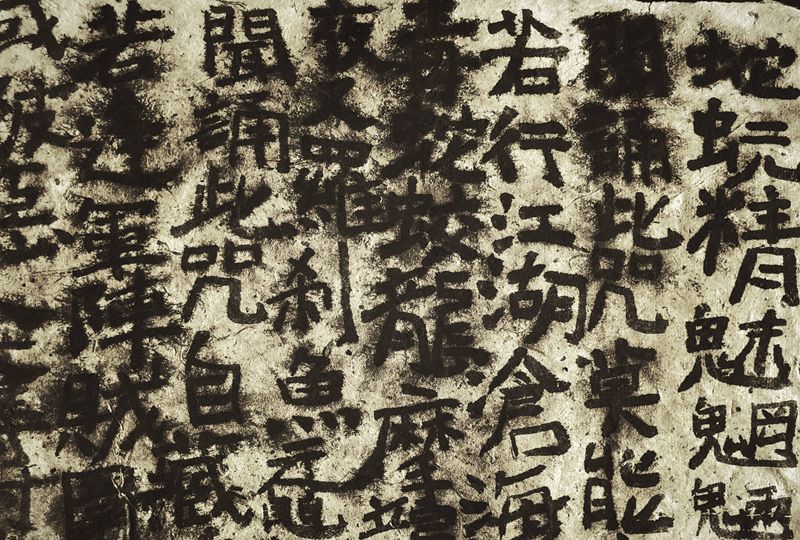 蛇蚖精魅魍魎
聞誦此咒莫能
若行江湖滄海
毒蛇蛟龍摩竭
夜叉羅剎魚黿
聞誦此咒自藏
若逢軍陣賊
或被惡